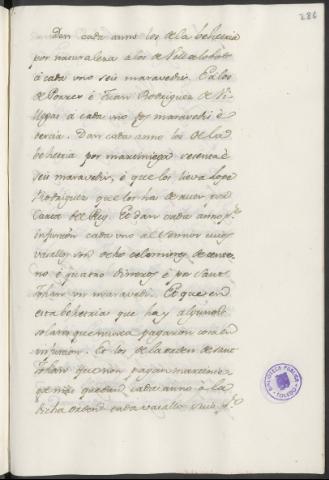 286
Dan cada anno los de la behetria
por naturaleza a los de Villalobos
a cada uno seis maravedis. E a los
de Porrer é Juan Rodriguez de Vi
llegas a cada uno dos maravedis é
tercia. Dan cada anno los de la
behetria por martiniega setenta é
seis maravedis, é que los lieva Lope
Rodriguez que los ha de aver por
Carta del Rey. Et dan cada anno por
infurcion cada uno al Sennor cuios
vasallos son ocho celemines de cente
no é quatro dineros é por Sant
Johan un maravedi. Et que en
esta behetria que hay algunos
solares que nunca pagaron
infurcion. Et los de la orden de Sant
Johan que non pagan martinie
ga mas que dan cada anno á la
dicha orden cada vasallo
BIBLIOTECA PUBLICA
TOLEDO